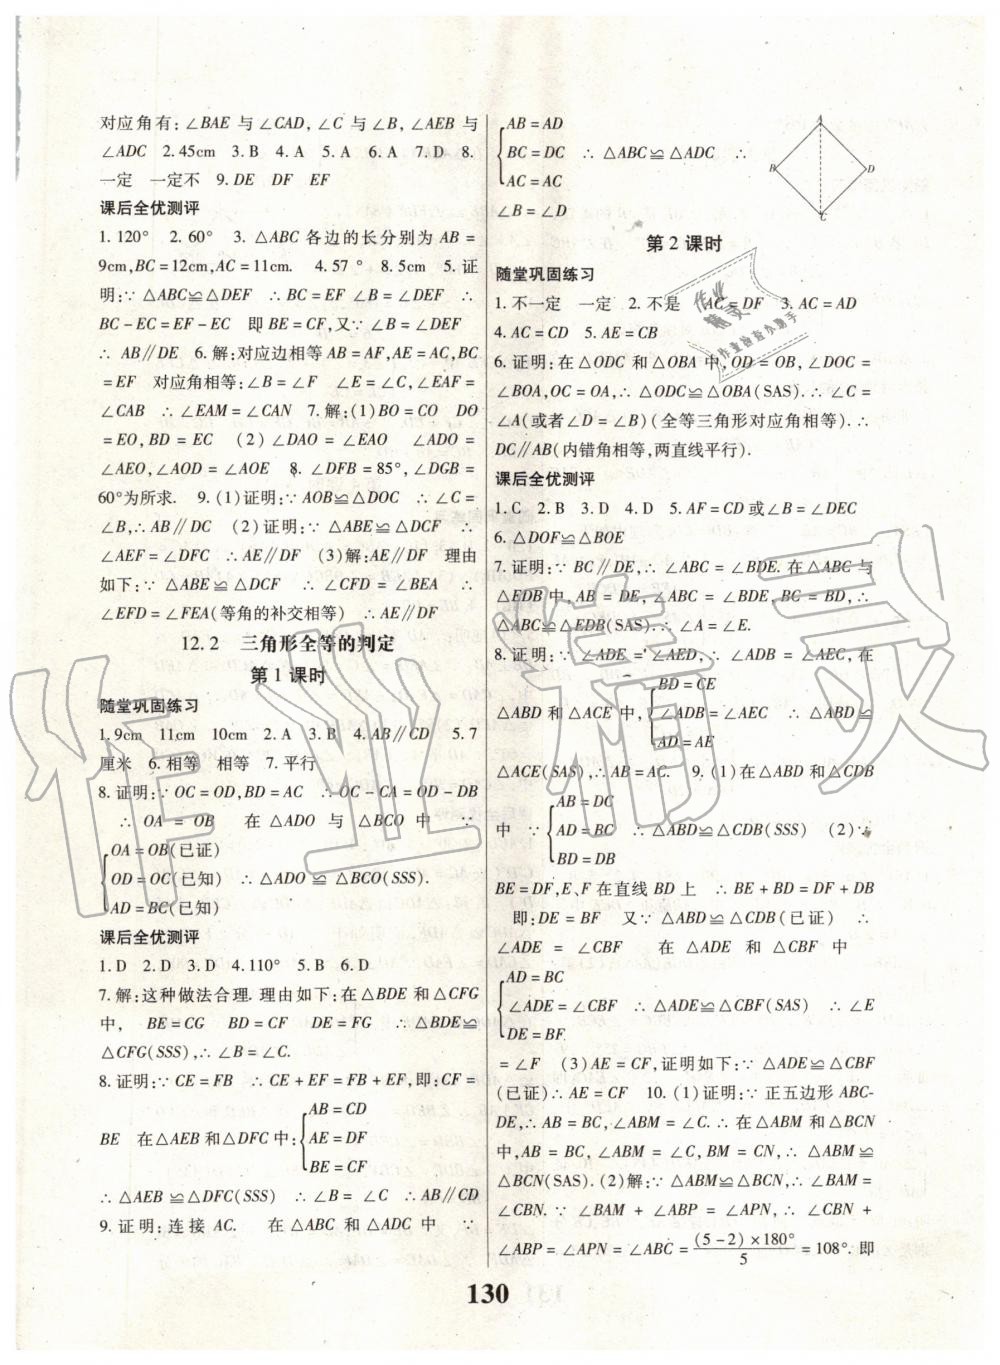 对应角有:∠BAE 与∠CAD,∠C 与∠B,∠AEB 与
∠ADC 2.45cm 3.B 4.A 5.A 6.A 7.D 8.
一定 一定不 9.DE DF EF
课后全优测评
1.120° 2.60° 3.△ABC 各边的长分别为 AB =
9cm,BC = 12cm,AC = 11cm. 4.57° 8.5cm 5.证
明:∵ △ABC≌△DEF ∴ BC = EF ∠B = ∠DEF ∴
BC - EC = EF - EC 即 BE = CF,又∵ ∠B = ∠DEF
∴ AB∥DE 6.解:对应边相等 AB = AF,AE = AC,BC
= EF 对应角相等:∠B = ∠F ∠E = ∠C,∠EAF =
∠CAB ∴ ∠EAM = ∠CAN 7.解:(1)BO = CO DO
= EO,BD = EC (2)∠DAO = ∠EAO ∠ADO =
∠AEO,∠AOD = ∠AOE 8.∠DFB = 85°,∠DGB =
60°为所求. 9.(1)证明:∵ AOB≌△DOC ∴ ∠C =
∠B,∴AB∥DC (2)证明:∵ △ABE≌△DCF ∴
∠AEF = ∠DFE ∴ AE∥DF (3)解:AE∥DF 理由
如下:∵ △ABE ≌ △DCF ∴ ∠CFD = ∠BEA ∴
∠EFD = ∠FEA(等角的补交相等) ∴ AE∥DF
12.2 三角形全等的判定
第 1 课时
随堂巩固练习
1.9cm 11cm 10cm 2.A 3.B 4.AB∥CD 5.7
厘米 6.相等 相等 7.平行
8.证明:∵ OC = OD,BD = AC ∴ OC - CA = OD - DB
∴ OA = OB 在 △ADO 与 △BCO 中 ∵
OA = OB(已证)
OD = OC(已知) ∴ △ADO ≌ △BCO(SSS).
AD = BC(已知)
课后全优测评
1.D 2.D 3.D 4.110° 5.B 6.D
7.解:这种做法合理.理由如下:在△BDE 和△CFG
中, BE = CG BD = CF DE = FG ∴ △BDE≌
△CFG(SSS),∴ ∠B = ∠C.
8.证明:∵ CE = FB ∴ CE + EF = FB + EF,即:CF =
AB = CD
BE 在△AEB 和△DFC 中: AE = DF
BE = CF
∴ △AEB ≌△DFC(SSS) ∴ ∠B = ∠C ∴ AB∥CD
9.证明:连接 AC. 在 △ABC 和 △ADC 中 ∵
AB = AD
BC = DC ∴ △ABC≌△ADC ∴
AC = AC
∠B = ∠D
A
B
D
C
第 2 课时
随堂巩固练习
1.不一定 一定 2.不是 AC = DF 3.AC = AD
4.AC = CD 5.AE = CB
6.证明:在△ODC 和△OBA 中,OD = OB,∠DOC =
∠BOA,OC = OA,∴ △ODC≌△OBA(SAS).∴ ∠C =
∠A(或者∠D = ∠B)(全等三角形对应角相等).∴
DC∥AB(内错角相等,两直线平行).
课后全优测评
1.C 2.B 3.D 4.D 5.AF = CD 或∠B = ∠DEC
6.△DOF≌△BOE
7.证明:∵ BC∥DE,∴ ∠ABC = ∠BDE.在△ABC 与
△EDB 中,AB = DE,∠ABC = ∠BDE,BC = BD,∴
△ABC≌△EDB(SAS).∴ ∠A = ∠E.
8.证明:∵ ∠ADE = ∠AED,∴ ∠ADB = ∠AEC,在
BD = CE
△ABD 和△ACE 中, ∠ADB = ∠AEC ∴ △ABD≌
AD = AE
△ACE(SAS),∴ AB = AC. 9.(1)在△ABD 和△CDB
AB = DC
中 ∵ AD = BC ∴ △ABD≌△CDB(SSS) (2)∵
BD = DB
BE = DF,E,F 在直线 BD 上 ∴ BE + BD = DF + DB
即:DE = BF 又∵ △ABD≌△CDB(已证) ∴
∠ADE = ∠CBF 在 △ADE 和 △CBF 中
AD = BC
∠ADE = ∠CBF ∴ △ADE≌△CBF(SAS) ∴ ∠E
DE = BF.
= ∠F (3)AE = CF,证明如下:∵ △ADE≌△CBF
(已证)∴ AE = CF 10.(1)证明:∵ 正五边形 ABC-
DE,∴ AB = BC,∠ABM = ∠C.∴ 在△ABM 和△BCN
中,AB = BC,∠ABM = ∠C,BM = CN,∴ △ABM ≌
△BCN(SAS).(2)解:∵ △ABM≌△BCN,∴ ∠BAM =
∠CBN.∵ ∠BAM + ∠ABP = ∠APN,∴ ∠CBN +
∠ABP = ∠APN = ∠ABC = (5-2)×180°/5 = 108°.即
130
作业
精灵
作业检查小助手
作业精灵